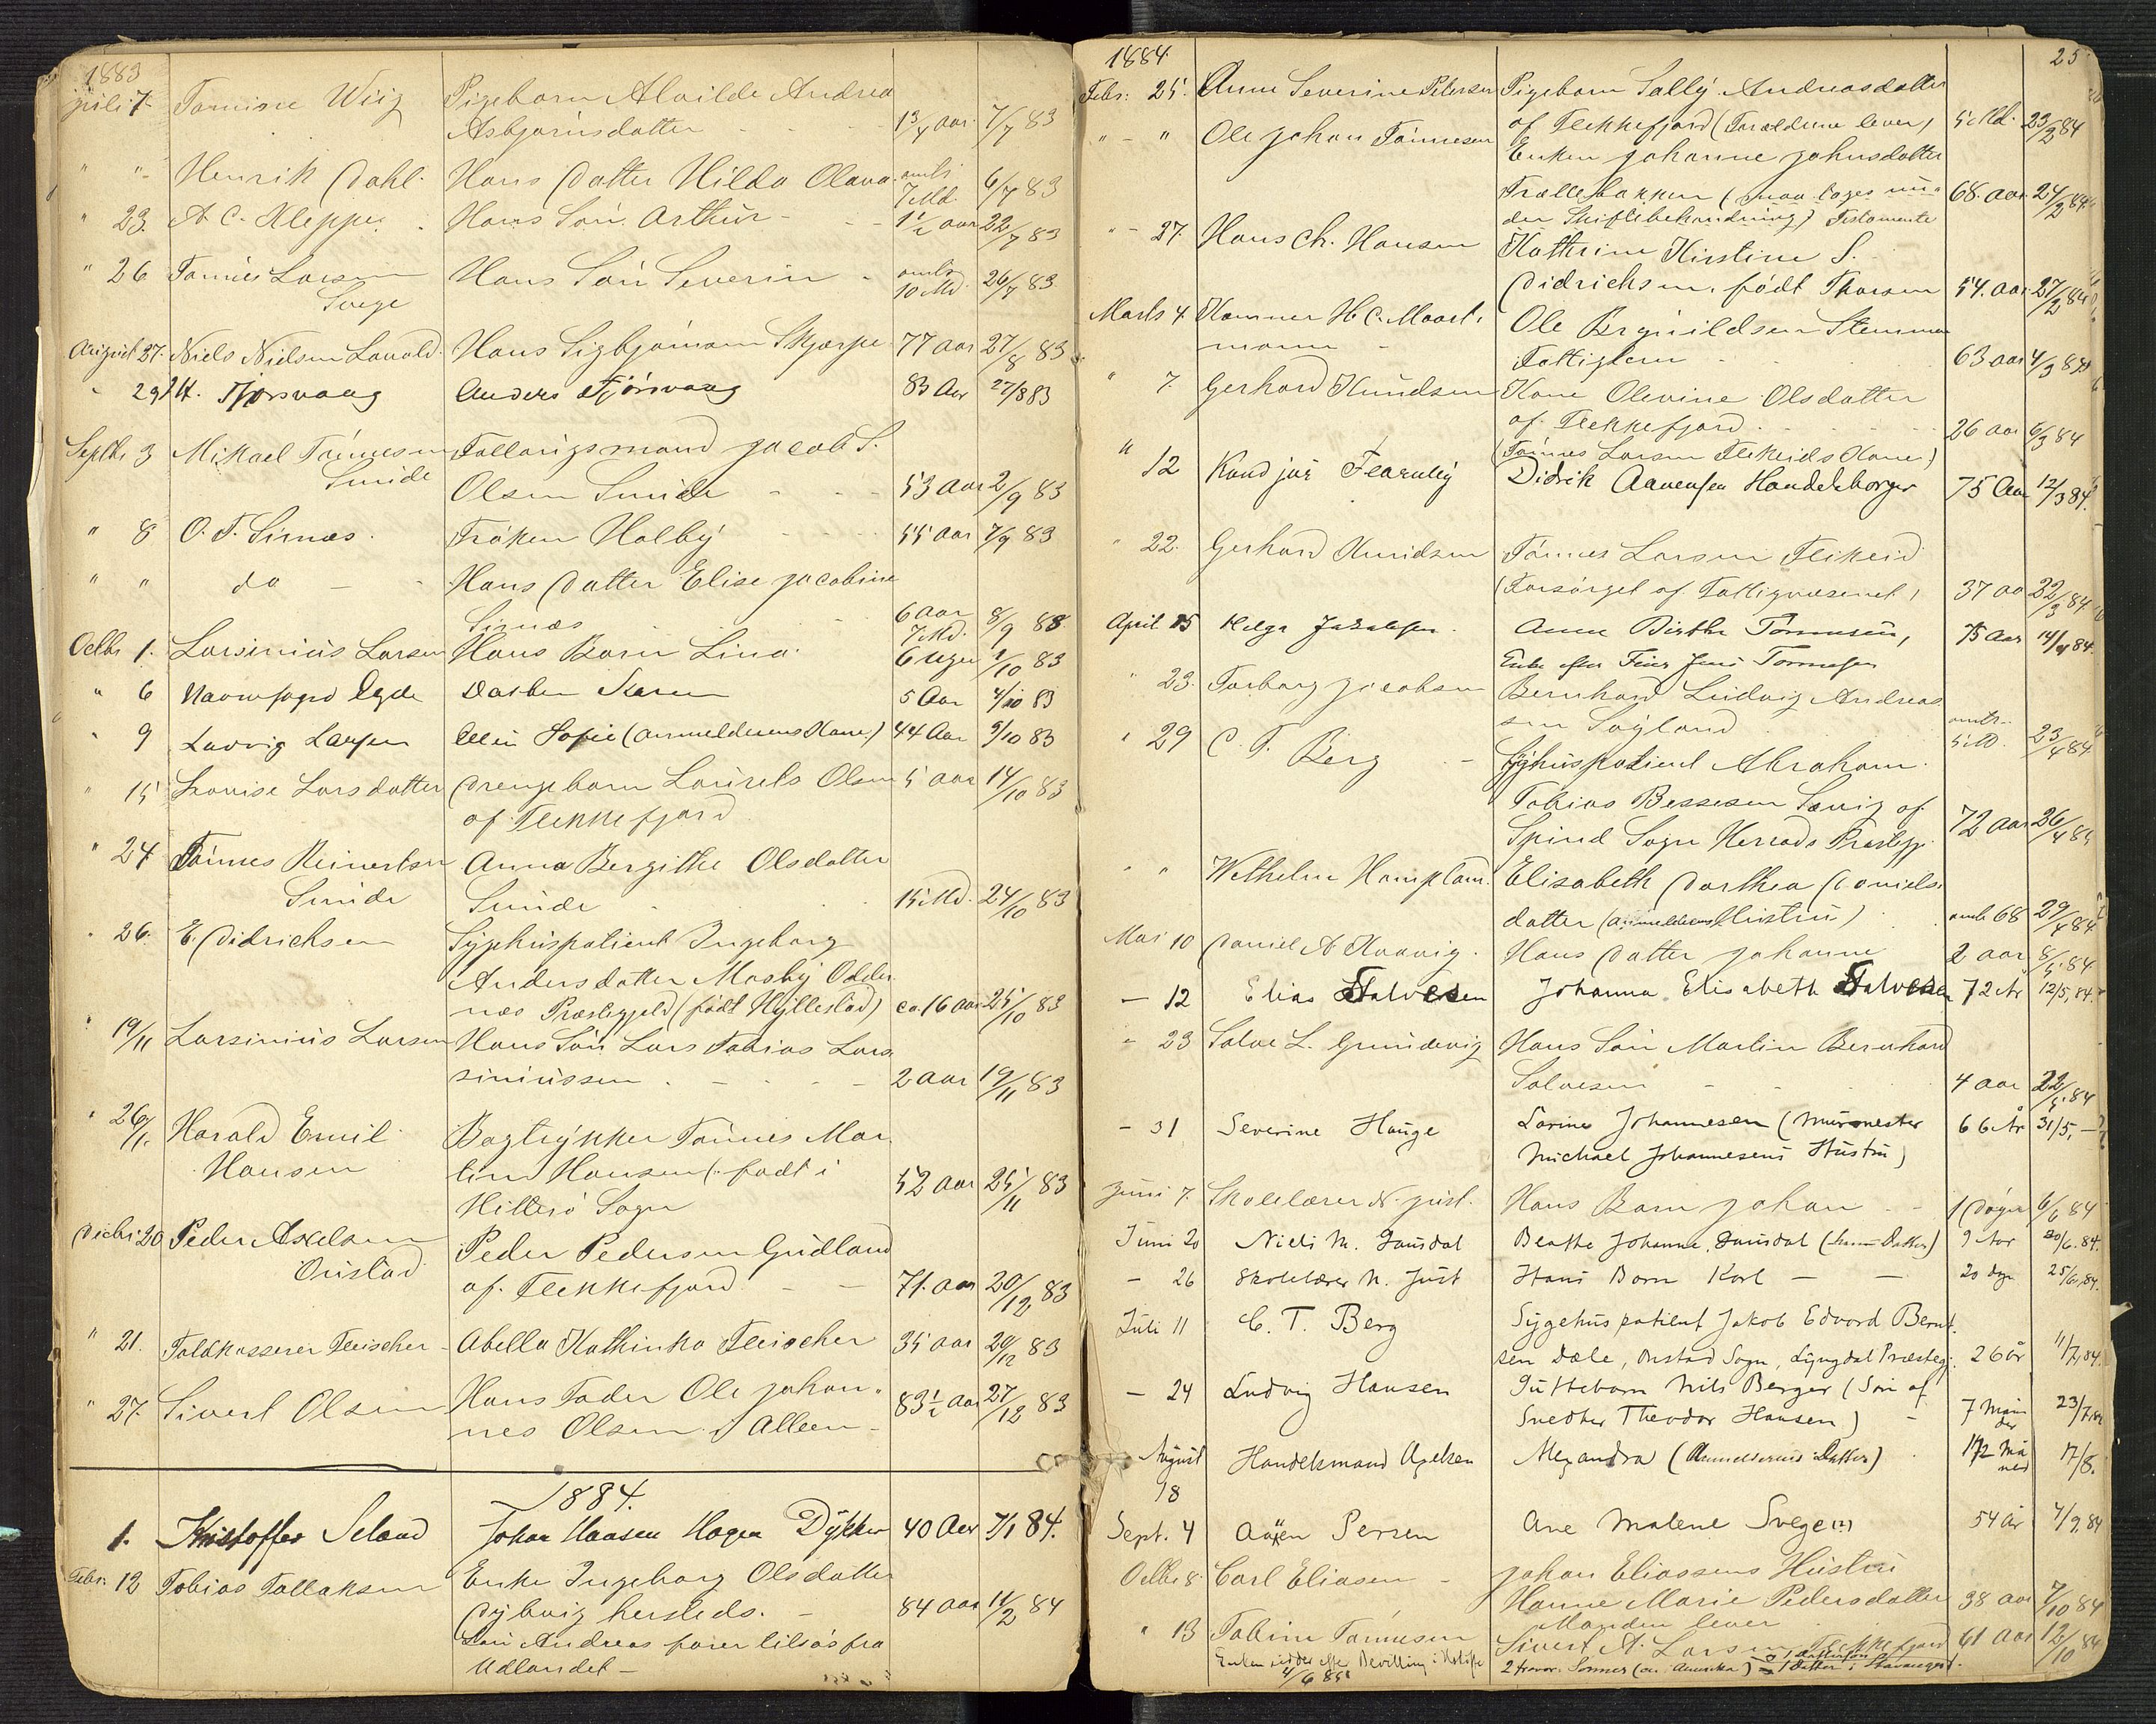 1883
juli 7. Tomine Wiig Pigebarn Alvilde Andrea
Asbjørnsdatter - - - 1 3/4 aar 7/7 83
" " Henrik Dahl. Hans Datter Hilda Olava omtr 7 Md 6/7 83
" 23. A. C. Kleppe. Hans Søn Arthur - - 1½ aar 22/7 83
" 26 Tønnes Larsen Hans Søn Severin - omtr 10 Md. 26/7 83
Svege
August 27. Niels Nielsen Lavold. Hans Sigbjørnsen Skjærpe 77 aar 27/8 83
" 29 Fjørsvaag Anders Fjørsvaag 83 Aar 27/8 83
Septbr 3 Mikael Tønnesen Follaugsmand Jacob S.
Sunde Olsen Sunde - - - 53 aar 2/9 83
" 8 O. T. Sirnæs. Frøken Halby - - - 55 aar 7/9 83
" " do - Hans Datter Elise Jacobine
Sirnæs 6 aar 7 Md. 8/9 83.
Octbr 1. Larsinius Larsen Hans Barn Lina. 6 uger 1/10 83
" 6 Egde Karen 5 Aar 4/10 83
" 9 Ludvig Larsen Sofie (anmelderens Kone) 44 Aar 9/10 83
" 15 Lovise Larsdatter Drengebarn Laurets Olsen 5 aar 14/10 83
af Flekkefjord
" 24 Tønnes Reinertsen Anna Bergithe Olsdatter
Sunde Sunde 15 Md. 24/10 83
" 26. E. Didrichsen Sygehuspatient Ingeborg
Andersdatter Mosby Odder
næs Præstegjeld (født Hyllestad) ca. 16 aar 25/10 83
" 19/11 Larsinius Larsen Hans Søn Lars Tobias Lar
siniussen. - - - 2 aar 19/11 83
" 26/11 Harald Emil Bogtrykker Tønnes Mar
Hansen tin Hansen (født i 52 aar 25/11 83
Hitterø Sogn
Decbr 20 Peder Axelsen Peder Pedersen Gudland
Onstad af Flekkefjord - - 71. aar 20/12 83
" 21. Toldkasserer Fleischer - Abella Kathinka Fleischer 35 aar 20/12 83
" 27. Sivert Olsen Hans Fader Ole Johan-
nes Olsen Alleen - 83½ aar 27/12 83
1884.
1. Kristoffer Seland Johan Hansen Hagen Dykker 40 Aar 1/1 84.
Febr: 12 Tobias Tollaksen Enke Ingeborg Olsdatter
Dybvig hersteds. - 84 aar 11/2 84
Søn Andreas farer tilsøs fra
Udlandet -
1884. 25.
Febr: 25. Anne Severine Petersen Pigebarn Sally Andreasdatter
af Flekkefjord (Forældrene lever) 5 Md. 23/2 84
" - " Ole Johan Tønnesen Enken Johanne Johnsdatter
Trællebakken (maa tages un-
der Skiftebehandling) Testamente 68. aar 24/2 84.
" - 27. Hans Ch. Hansen Kathrine Kirstine S.
Didrichsen, født Thorsen 54. aar 27/2 84
Marts 4. H. C. Moest- Ole Brynildsen Stemmen
mann - Fattiglem - 63 aar 4/3 84
" 7. Gerhard Knudsen Kone Olevine Olsdatter
af Flekkefjord. 26 aar 6/3 84
(Tønnes Larsen Flikeids Kone)
" 12 Kand jur Fearnley Didrik Aanensen Handelsborger 75 Aar 12/3 84.
" 22. Gerhard Knudsen Tønnes Larsen Flikeid
(Forsørget af Fattigvæsenet) 37 aar 22/3 84.
April 15 Helga Jakobsen. Anne Birthe Tønnesen, 75 Aar 14/4 84.
Enke efter Jens Tønnesen
" 23. Torborg Jacobsen Bernhard Ludvig Andreas
sen Løgland omtr 5 Md. 23/4 84.
" 29 C. T. Berg - Sygehuspatient Abraham
Tobias Bessesen Løvig af
Spind Sogn Herreds Præstegj. 72 aar 26/4 84
" " Wilhelm Elisabeth Dorthea Daniels-
datter (anmelderens Hustru) omtr 68 29/4 84
Mai 10 Daniel A. Kvavig. Hans Datter Johanne 2 aar 8/5 84
- 12 Elias Salvesen Johanna Elisabeth Salvesen 72 År 12/5, 84.
- 23 Salve L. Grundevig Hans Søn Martin Bernhard
Salvesen - - 4 aar 22/5 84
- 31 Severine Hauge Larine Johannesen (Murmester 66 År 31/5, -
Michael Johannesens Hustru)
Juni 7. Skolelærer N. Just. Hans Barn Johan - - 1 Døgn 6/6 84
Juni 20 Niels M. Jansdal Beathe Johanne Jansdal (hans Datter) 9 Aar 20/6. 84.
- 26 Skolelærer N. Just Hans Barn Karl - - 20 dgr 25/6, 84.
Juli 11 C. T. Berg Sygehuspatient Jakob Edvard Bernt-
sen Dæle, Onstad Sogn, Lyngdal Præstegj. 26 år 11/7, 84.
- 24 Ludvig Hansen Gutteborn Nils Berger (Søn af
Snedker Theodor Hansen) - 7 Maaneder 23/7, 84
August 18 Handelsmand Axelsen Alexandra (Anmelderens Datter) 1½ Maaned 17/8.
Sept. 4 Aanen Persen Ane Malene Svege (?) 54 år 4/9, 84
Octbr 8. Carl Eliasen - Johan Eliassens Hustru
Hanne Marie Pedersdatter 38 aar 7/10 84
Manden lever
" 13 Tobine Tønnesen Sivert A. Larsen Flekkefjord 61 aar 12/10 84
Enken sidder efter Bevilling i Uskifte 2 fravær. Sønner (en i Amerika) 1 Datter i Stavanger.
4/6 85